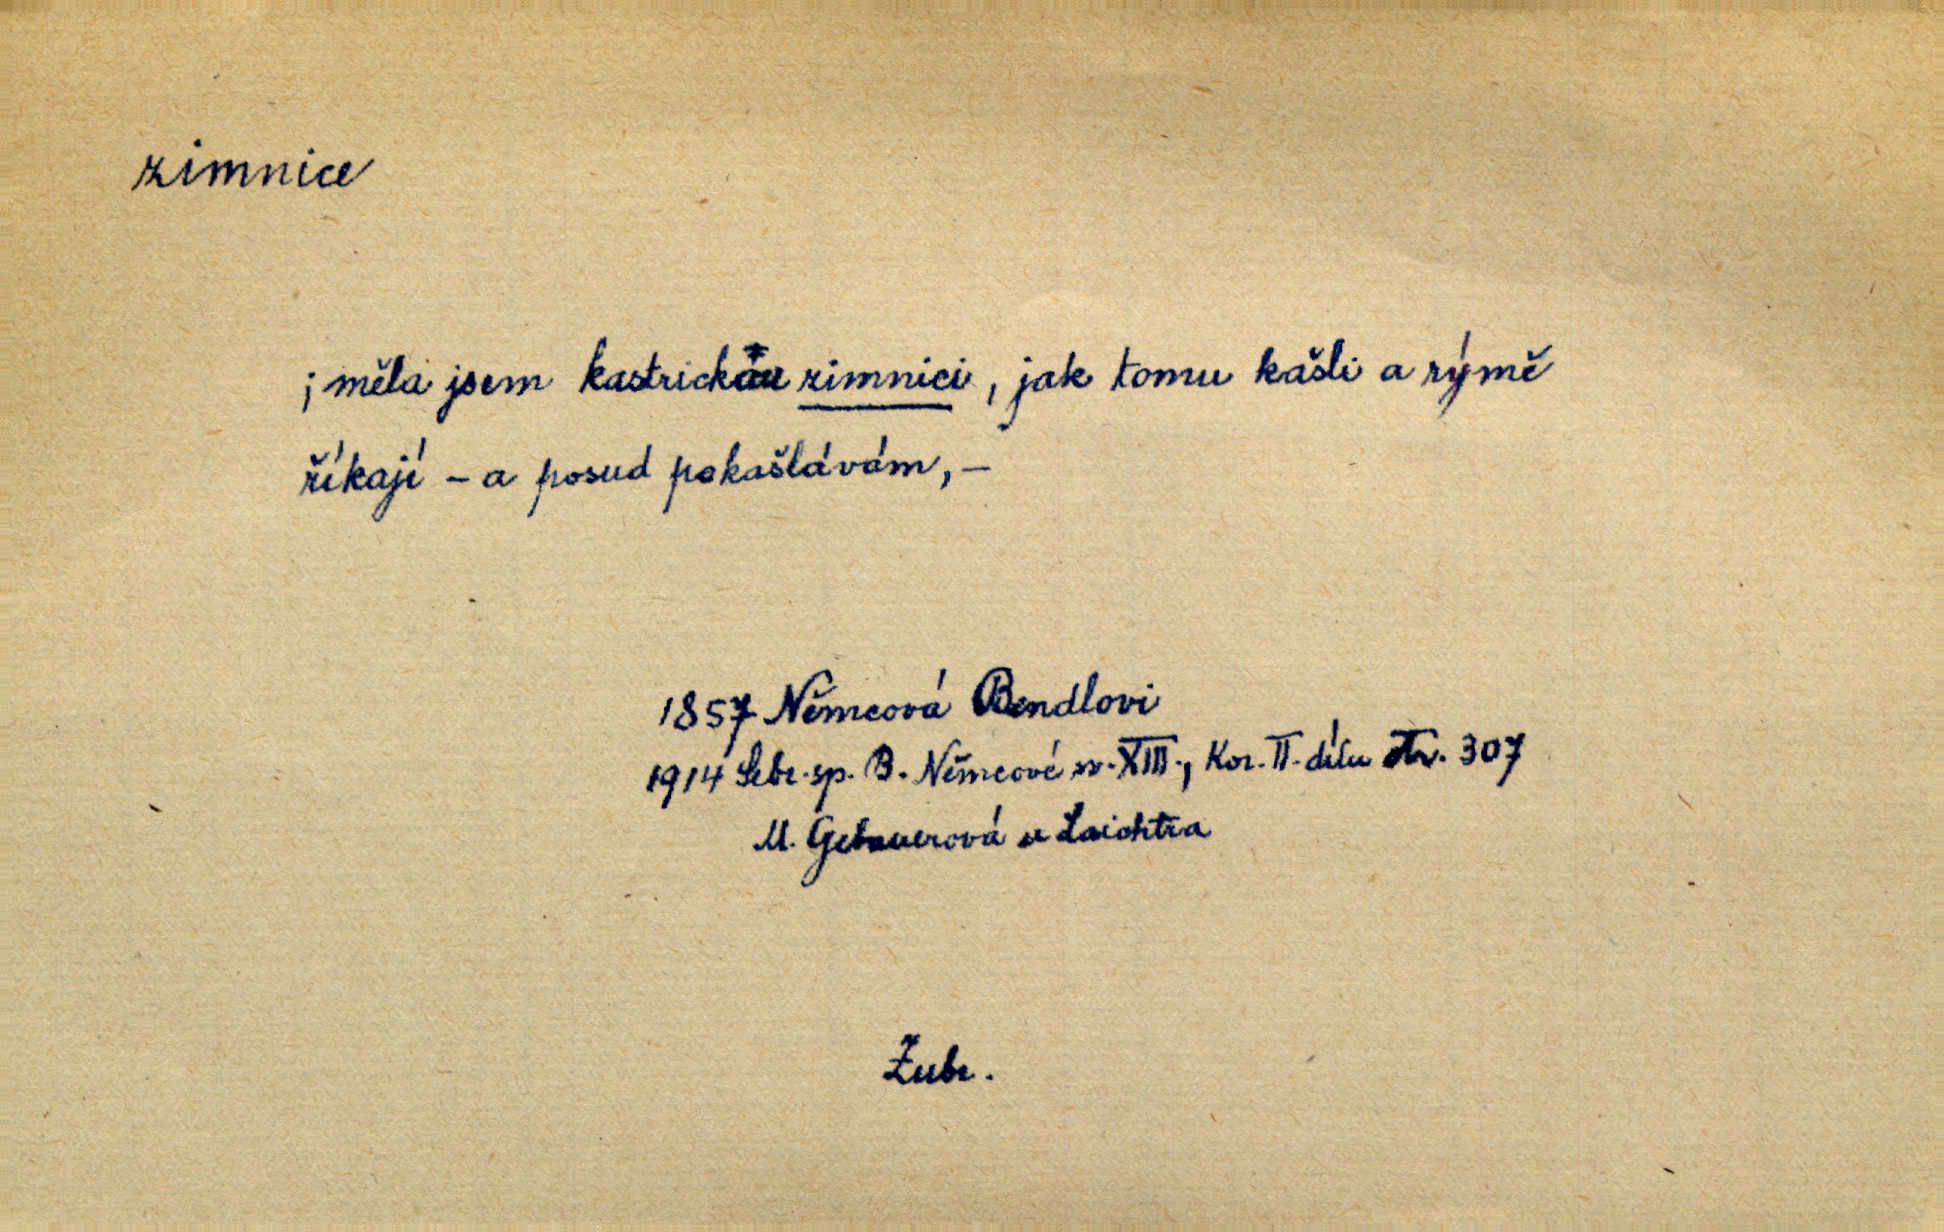 zimnice
; měla jsem kastrickau zimnici, jak tomu kašli a rýmě
říkají – a posud pokašlávám, –
1857 Němcová Bendlovi
1914 Sebr. sp. B. Němcové sv. XIII., Kor. II. dílu str. 307
M. Gebauerová u Laichtra
Zubr.